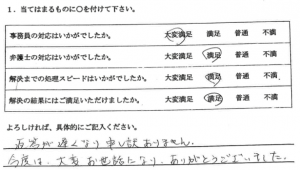 1．当てはまるものに○を付けて下さい。
事務員の対応はいかがでしたか。 大変満足 満足 普通 不満
弁護士の対応はいかがでしたか。 大変満足 満足 普通 不満
解決までの処理スピードはいかがでしたか。 大変満足 満足 普通 不満
解決の結果にはご満足いただけましたか。 大変満足 満足 普通 不満
よろしければ、具体的にご記入ください。
返答が遅くなり申し訳ありません。
今度は、大変お世話になり、ありがとうございました。